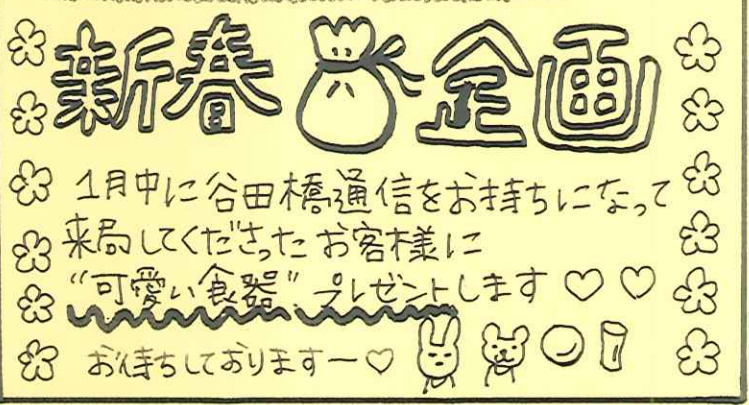 新春企画
1月中に谷田橋通信をお持ちになって
来局してくださったお客様に
“可愛い食器”プレゼントします♡♡
お待ちしておりますー♡